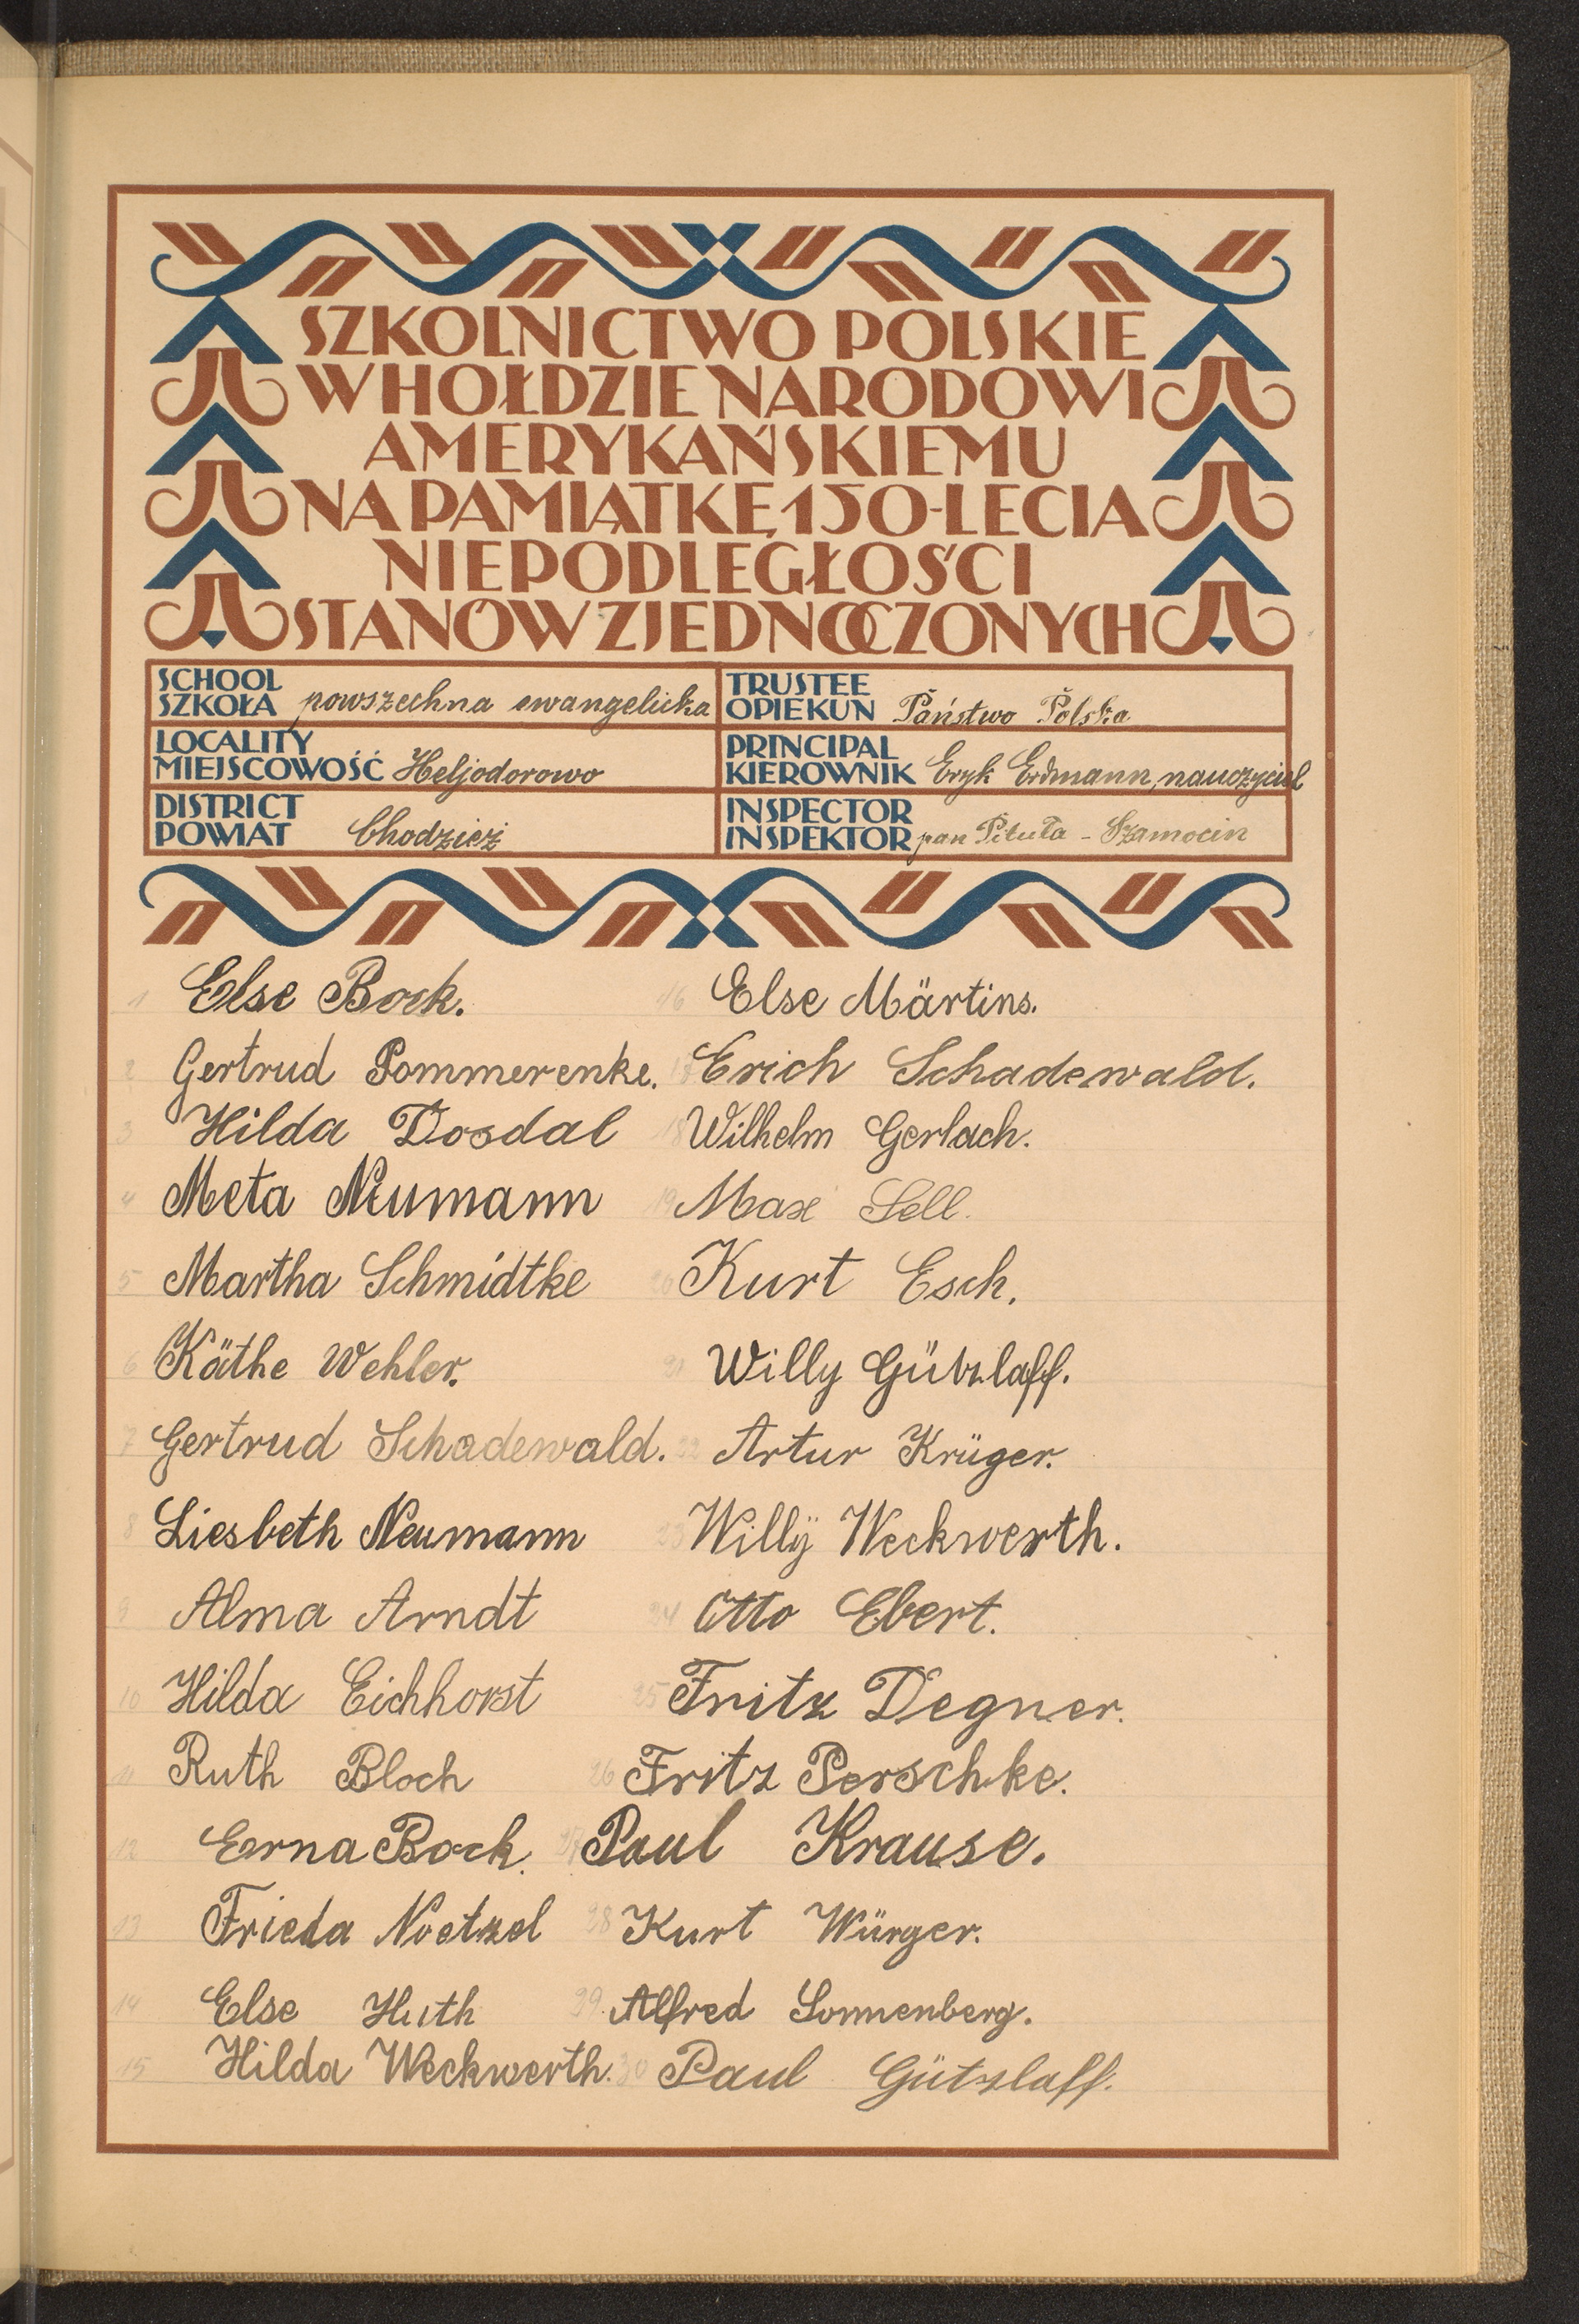 SZKOLNICTWO POLSKIE
W HOŁDZIE NARODOWI
AMERYKAŃSKIEMU
NA PAMIĄTKĘ 150-LECIA
NIEPODLEGŁOŚCI
STANÓW ZJEDNOCZONYCH
SCHOOL
SZKOŁA powszechna ewangelicka
TRUSTEE
OPIEKUN Państwo Polska
LOCALITY
MIEJSCOWOŚĆ Heljodorowo
PRINCIPAL
KIEROWNIK Eryk Erdmann, nauczyciel
DISTRICT
POWIAT Chodzież
INSPECTOR
INSPEKTOR pan Pituła - Szamocin
1 Else Bock.
2 Gertrud Pommerenke.
3 Hilda Dosdal
4 Meta Neumann
5 Martha Schmidtke
6 Käthe Wehler.
7 Gertrud Schadewald.
8 Liesbeth Neumann
9 Alma Arndt
10 Hilda Eichhorst
11 Ruth Bloch
12 Erna Bock.
13 Frieda Noetzel
14 Else Huth
15 Hilda Weckwerth.
16 Else Märtins.
17 Erich Schadewald.
18 Wilhelm Gerlach.
19 Max Sell.
20 Kurt Esch.
21 Willy Gützlaff.
22 Artur Krüger.
23 Willÿ Weckwerth.
24 Otto Ebert.
25 Fritz Degner.
26 Fritz Perschke.
27 Paul Krause.
28 Kurt Würger.
29. Alfred Sonnenberg.
30 Paul Gützlaff.